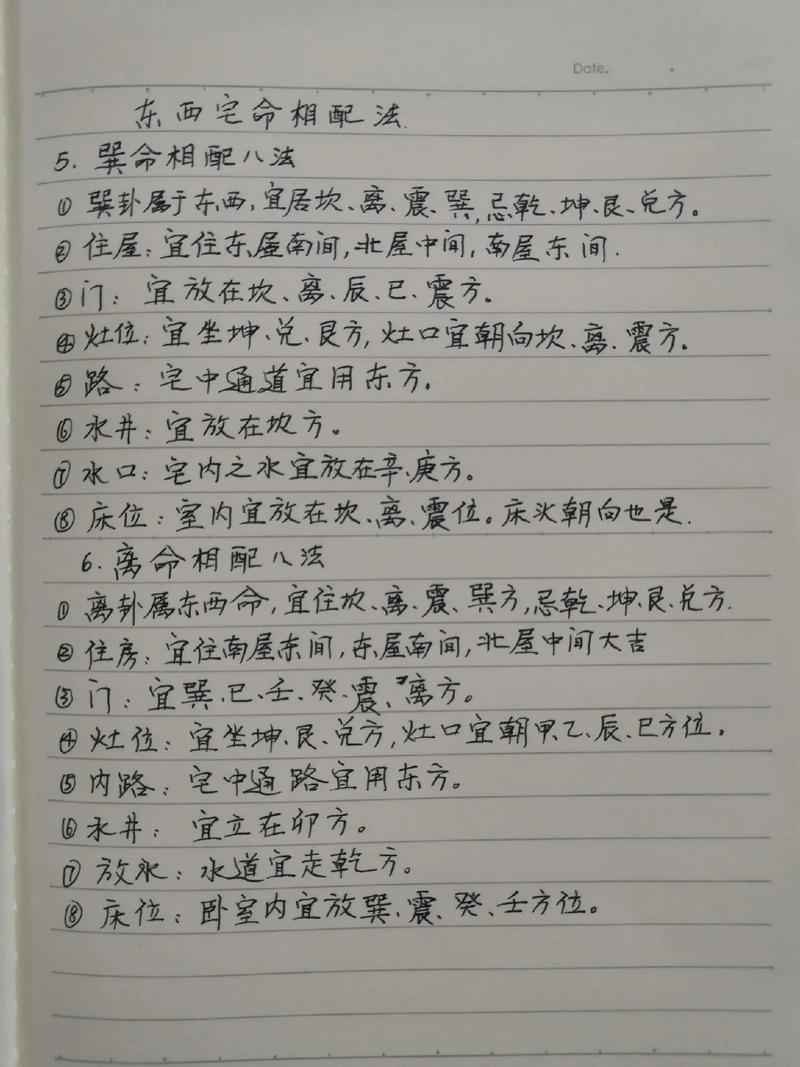 Date.
东西宅命相配法.
5. 巽命相配八法
① 巽卦属于东西,宜居坎、离、震、巽,忌乾、坤、艮、兑方。
② 住屋:宜住东屋南间,北屋中间,南屋东间.
③ 门: 宜放在坎、离、辰、巳、震方。
④ 灶位:宜坐坤、兑、艮方,灶口宜朝向坎、离、震方。
⑤ 路:宅中通道宜用东方。
⑥ 水井:宜放在坎方。
⑦ 水口:宅内之水宜放在辛、庚方。
⑧ 床位:室内宜放在坎、离、震位。床头朝向也是.
6. 离命相配八法
① 离卦属东西命,宜住坎、离、震、巽方,忌乾、坤、艮、兑方.
② 住房:宜住南屋东间,东屋南间,北屋中间大吉
③ 门:宜巽、巳、壬、癸、震、离方。
④ 灶位:宜坐坤、艮、兑方,灶口宜朝甲、乙、辰、巳方位。
⑤ 内路:宅中通路宜用东方。
⑥ 水井: 宜立在卯方。
⑦ 放水:水道宜走乾方。
⑧ 床位:卧室内宜放巽、震、癸、壬方位。